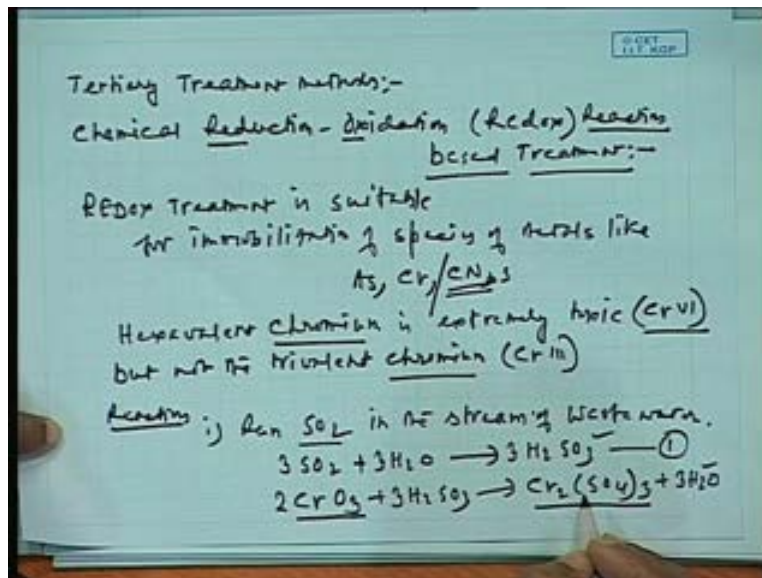 © CET
I.I.T. KGP
Tertiary Treatment methods:-
Chemical Reduction - Oxidation (Redox) Reaction
based Treatment:-
REDOX Treatment is suitable
for immobilization of species of metals like
As, Cr, / CN, S
Hexavalent chromium is extremely toxic (Cr VI)
but not the trivalent chromium (Cr III)
Reaction i) Run SO2 in the stream of wastewater.
3 SO2 + 3H2O → 3 H2 SO3 — ①
2 CrO3 + 3H2SO3 → Cr2(SO4)3 + 3H2O